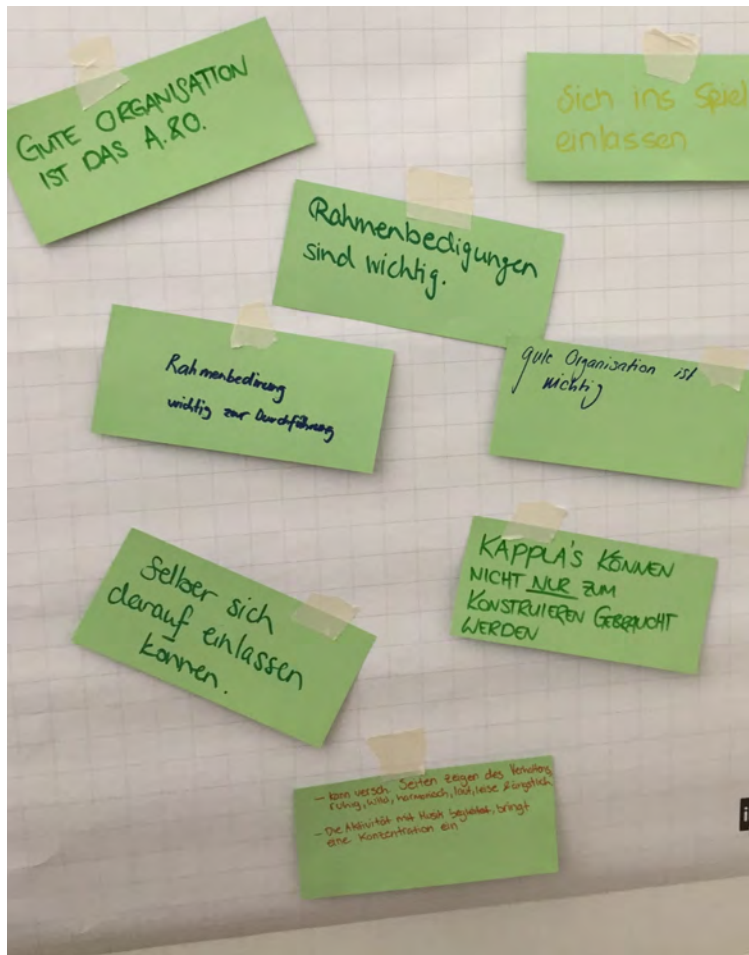 GUTE ORGANISATION
IST DAS A.&O.
Sich ins Spiel
einlassen
Rahmenbedigungen
sind wichtig.
Rahmenbedinung
wichtig zur Durchführung
gute Organisation ist
wichtig
Selber sich
darauf einlassen
können.
KAPPLA'S KÖNNEN
NICHT NUR ZUM
KONSTRUIEREN GEBRAUCHT
WERDEN
- kann versch. Seiten zeigen des Verhaltens,
ruhig, wild, harmonisch, laut, leise & ängstlich
- Die Aktivität mit Musik begleitet, bringt
eine Konzentration ein